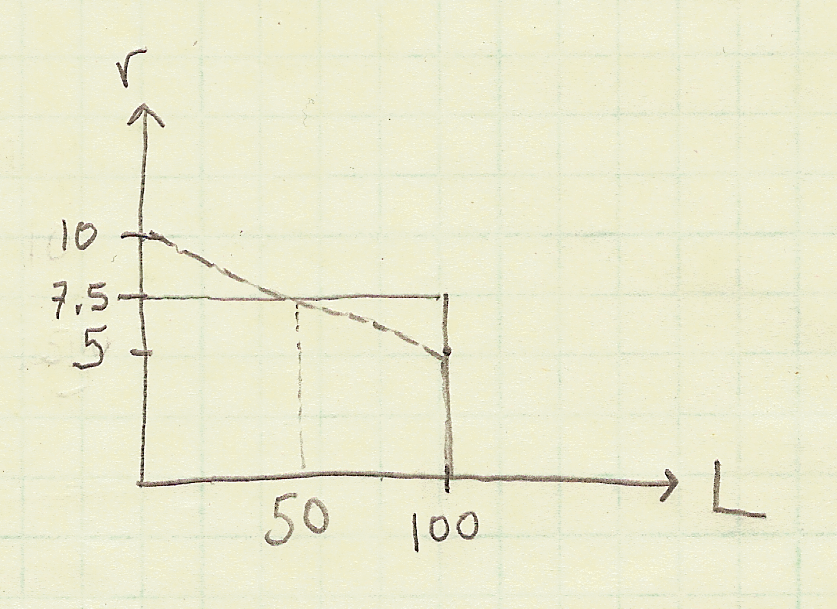 r
10
7.5
5
50
100
L